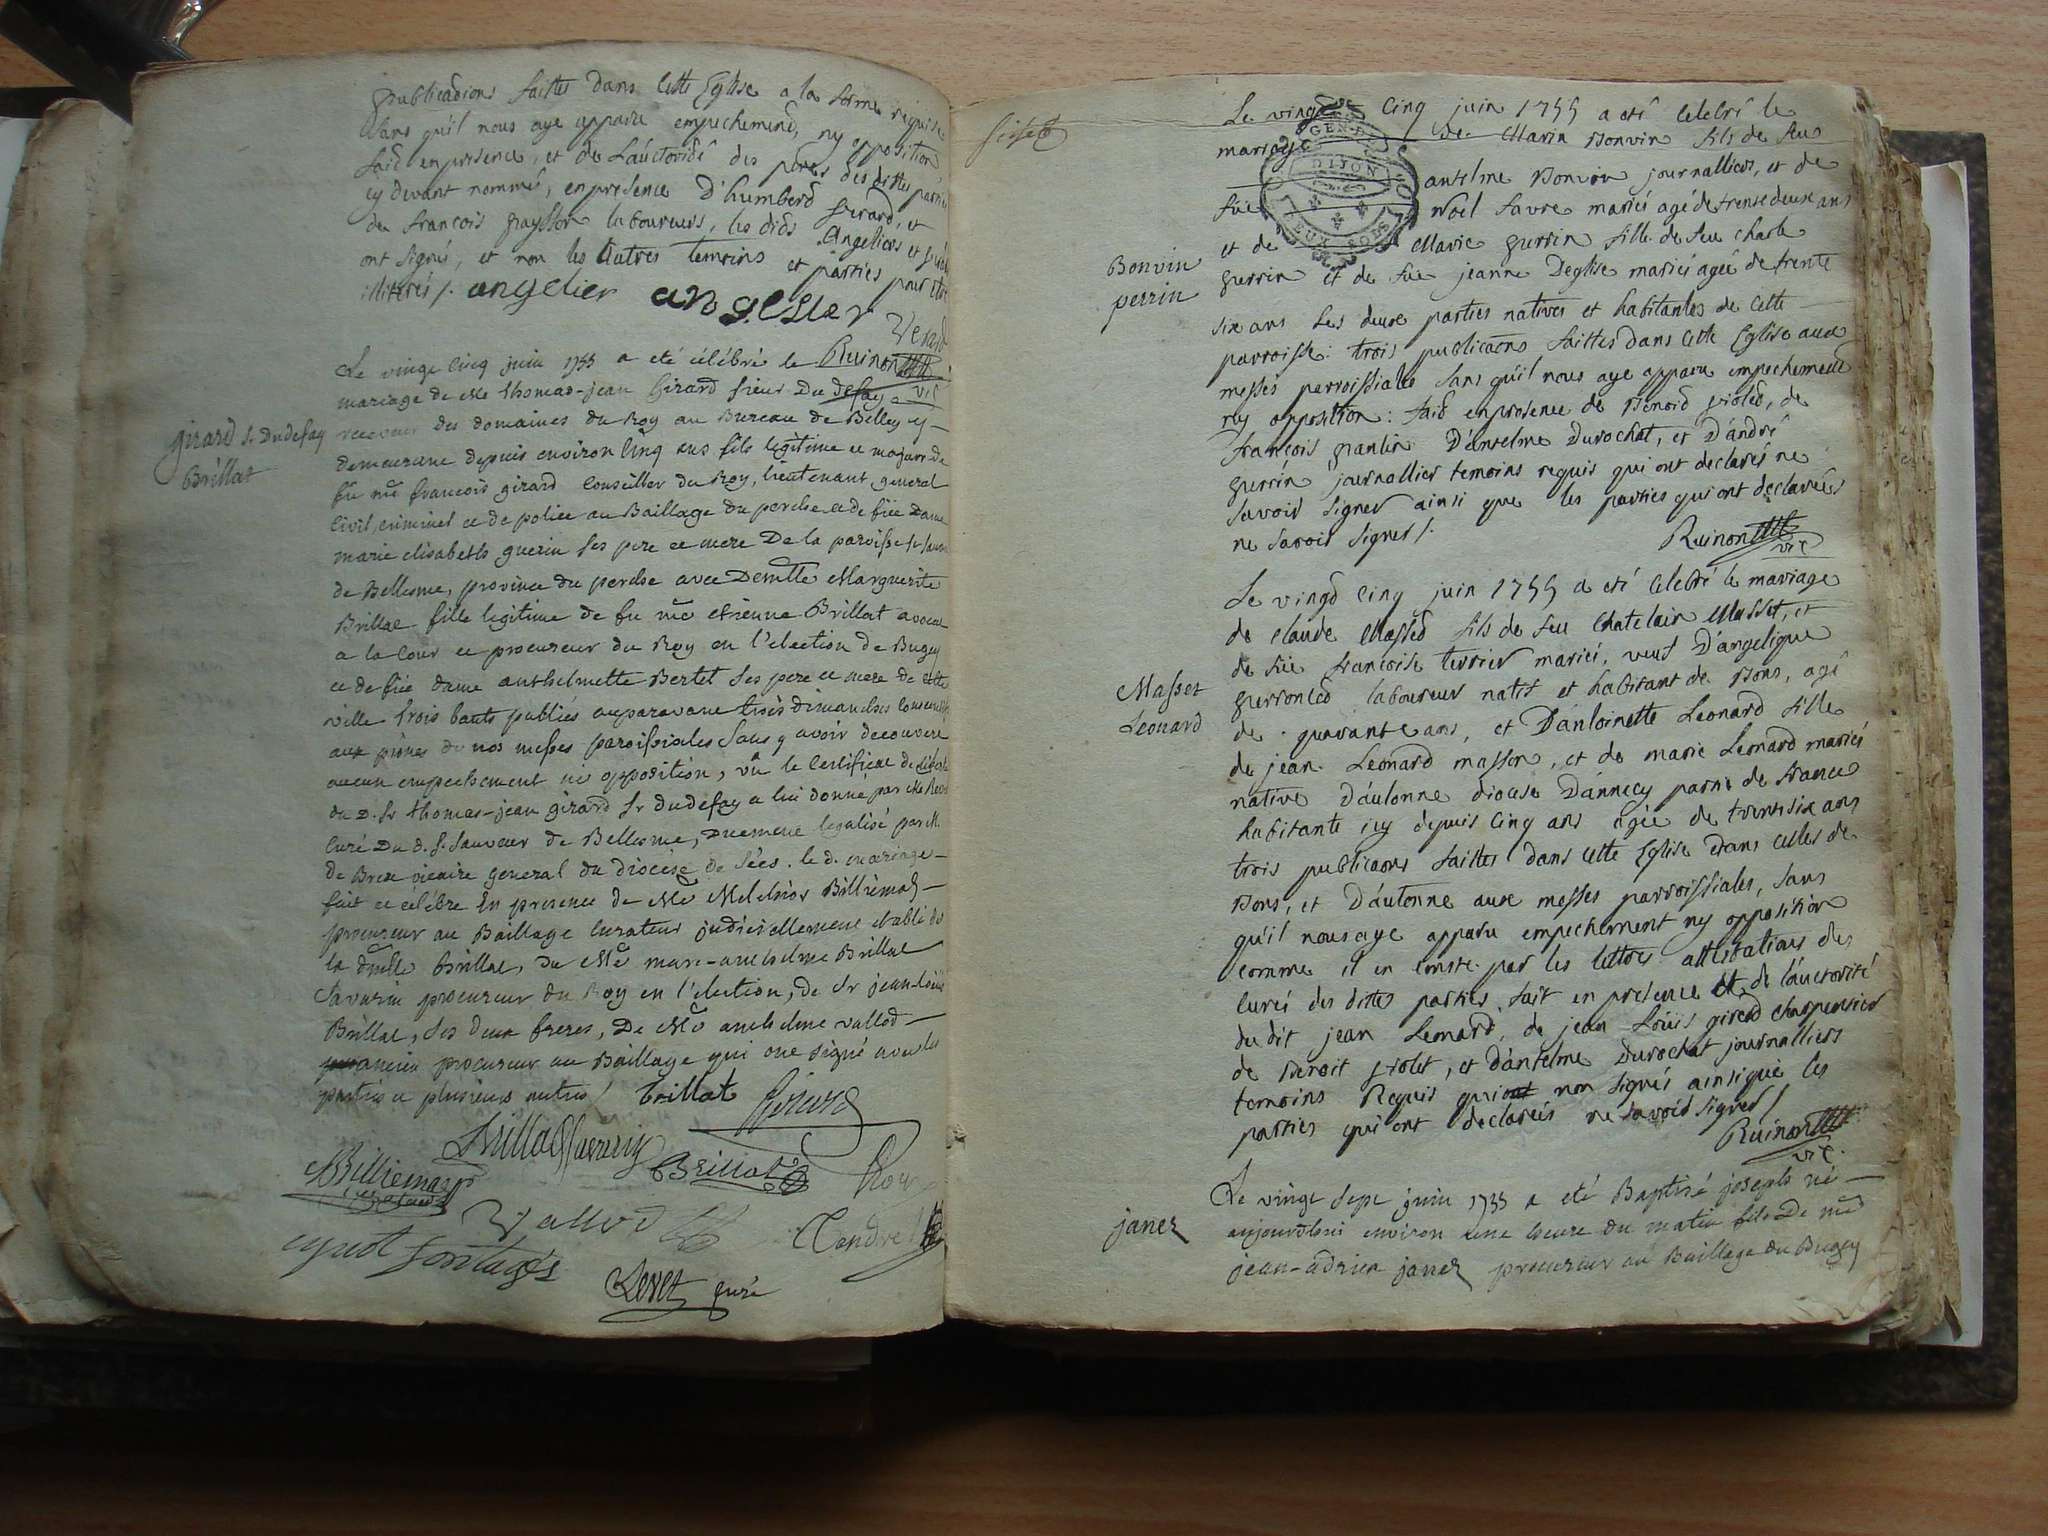 publications faittes dans cette Eglise a la forme requise
sans qu'il nous aye apparu empechement, ny opposition
fait en presence, et de L'auctorité des peres des dittes parties
cy devant nommés, en presence d'humberd girard, et
de françois laboureurs, les dids Angelier et
ont signés, et non les autres temoins et parties pour etre
illiterés /. angelier angelier
Verard
Ruinon vic
Girard Sr Dudefay
Brillat
Le vingt cinq juin 1755 a eté célébré le
mariage de Me thomas-jean Girard sieur Du defay
receveur des domaines du Roy au Bureau de Belley y
demeurant depuis environ cinq ans fils legitime et majeur de
fû me françois girard Conseiller du Roy, lieutenant general
Civil, criminel et de police au Baillage du perche et de füe Dame
marie elisabeth guerin ses pere et mere De la paroisse St Sauveur
de Bellesme, province du perche avec Demlle Marguerite
Brillat fille legitime de fû me etienne Brillat avocat
a la Cour et procureur du Roy en l'election de Bugey
et de füe dame anthelmette Bertet ses pere et mere de cette
ville trois bants publiés auparavant trois dimanches consecutifs
aux prônes de nos messes paroissiales sans y avoir decouvert
aucun empechement ni opposition, vû le Certificat de liberté
du D. Sr thomas-jean girard Sr dudefay a lui donné par Me
Curé Du d. S. Sauveur de Bellesme, Duement legalisé par M.
de Brex vicaire general du diocèse de Sées. le d. mariage
fait et célébré En presence de Me Melchior Billiemas
procureur au Baillage Curateur judiciellement etabli de
la dmlle Brillat, de Me marc-anthelme Brillat
Savarin procureur du Roy en l'election, de Sr jean-loüis
Brillat, Ses deux freres, De Me anthelme vallod
ancien procureur au Baillage qui ont signé avec les
parties et plusieurs autres / Brillat Girard
Brillat Savarin
Billiemas Brillat Roy
curateur
Vallod
Tendret
cyvot fontages
Levet curé
Le vingd Cinq juin 1755 a eté Celebré le
mariage de Marin Bonvin fils de feu
GEN. D
DIJON
DEUX SOLS
anselme Bonvin journallier, et de
füe Noël favre mariés agé de trente deux ans
et de Marie perrin fille de feu Charle
Bonvin
perrin
perrin et de füe jeanne Deglise mariés agée de trente
six ans Les deux parties natives et habitantes de Cette
parroisse: trois publicaons faittes dans Cette Eglise aux
messes parroissialles sans qu'il nous aye apparu empechement
ny opposition: fait en presence de Benoid violed, de
françois D'anselme Durochat, et D'andré
perrin journallier temoins requis qui ont declarés ne
savoir signer ainsi que les parties qui ont declarées
ne savoir signer /.
Ruinon vic
Le vingd Cinq juin 1755 a eté Celebré le mariage
de Claude Massed fils de feu Chatelain Masset, et
de füe françoise terrier mariés, veuf D'angelique
Masset
Léonard
laboureur natif et habitant de Bons, agé
de quarante ans, et D'antoinette Leonard fille
de jean Leonard masson, et de marie Leonard mariés
native D'autonne diocese D'annecy partie de france
habitante icy depuis Cinq ans agée de trente six ans
trois publicaons faittes dans cette Eglise Dans celles de
Bons, et D'autonne aux messes parroissiales, sans
qu'il nous aye apparu empechement ny opposition
comme il en conste par les lettres attestations des
curés des dittes parties, fait en presence et de l'auctorité
du dit jean Leonard, de jean Loüis girod charpentier
de Benoit violet, et D'antelme Durochat journalliers
temoins Requis qui ont non signés ainsi que les
parties qui ont declarés ne savoir signer /
Ruinon
vic.
janez
Le vingt sept juin 1755 a eté Baptisé joseph né
aujourd'hui environ une heure du matin fils De me
jean-adrien janez procureur au Baillage du Bugey